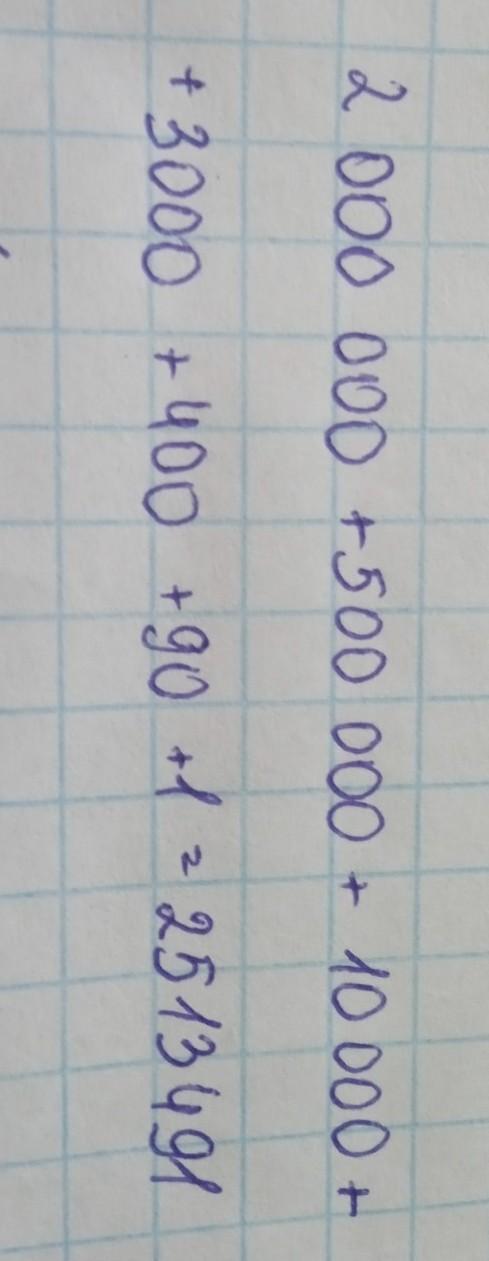 2 000 000 + 500 000 + 10 000 +
+ 3000 + 400 + 90 + 1 = 2513491